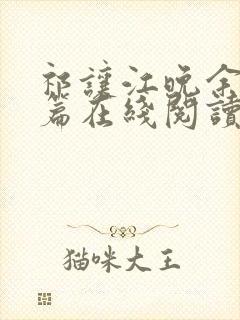 祁讓江晚余
篇在綫閱讀
猫咪大王